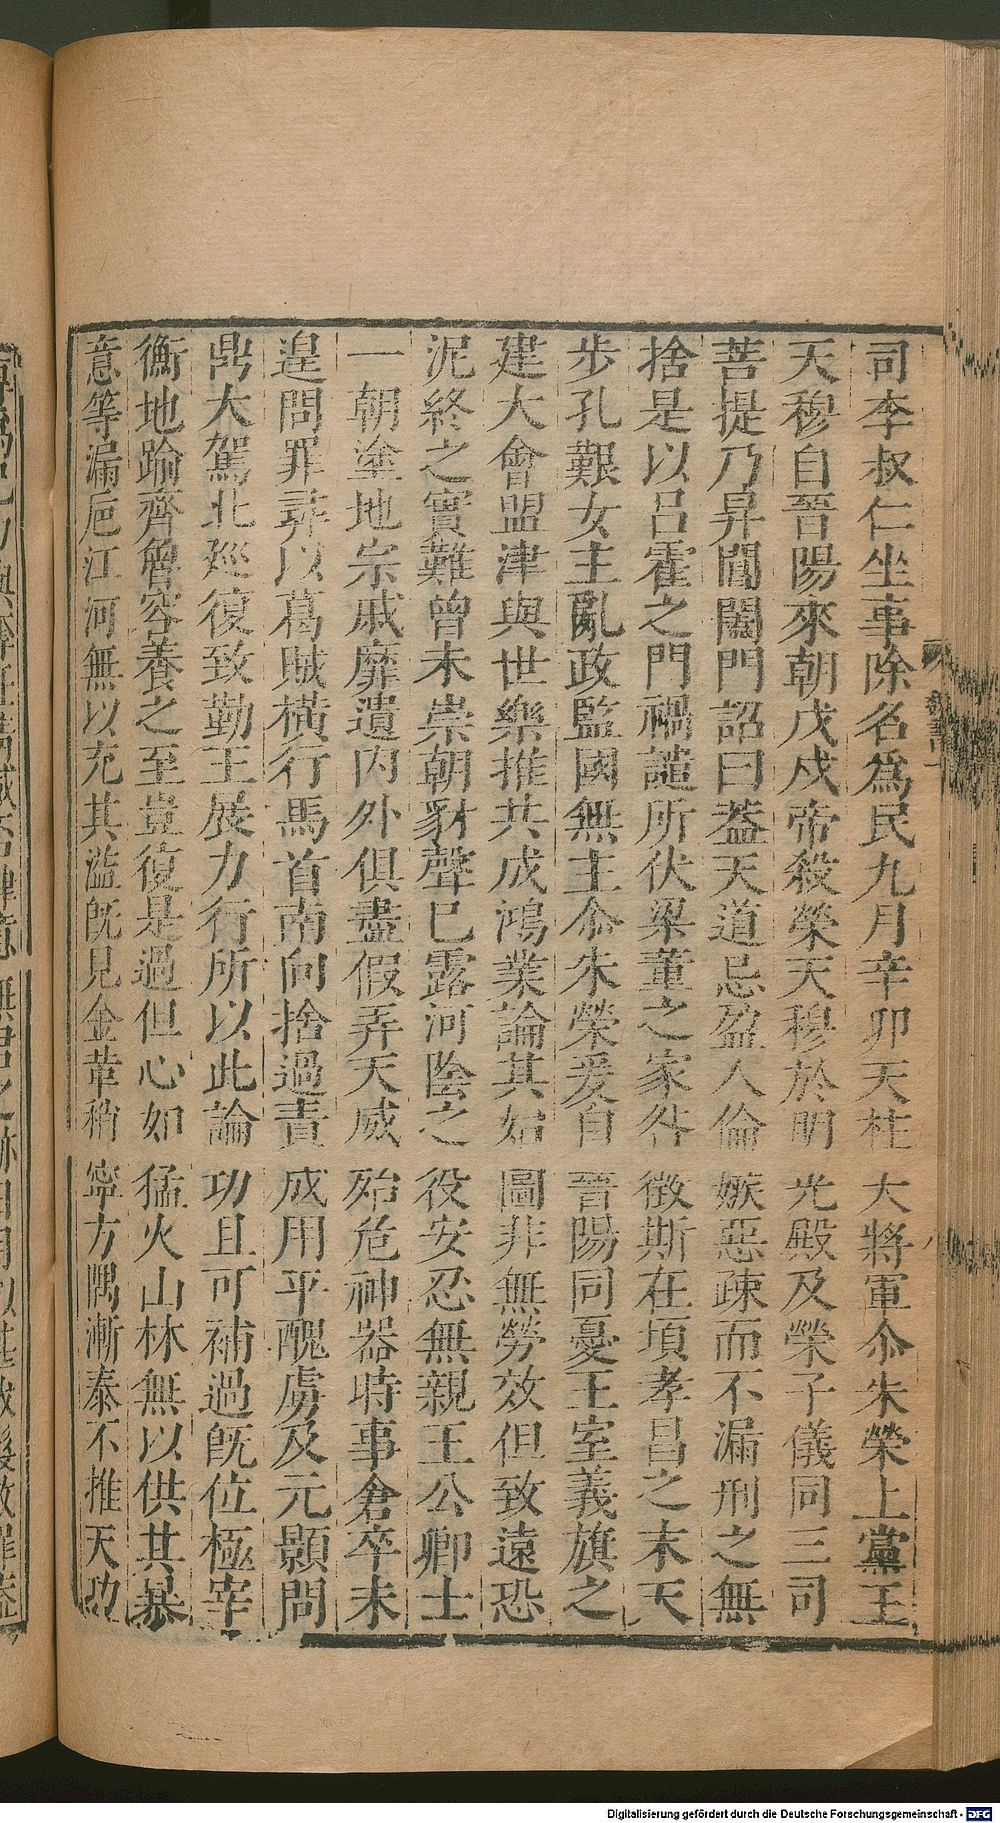 司李叔仁坐事除名為民九月辛卯天柱大將軍尒朱榮上黨王
天穆自晉陽來朝戊戌帝殺榮天穆於明光殿及榮子儀同三司
菩提乃昇閶闔門詔曰葢天道忌盈人倫嫉惡疎而不漏刑之無
捨是以呂霍之門禍譴所伏梁董之家咎徵斯在頃孝昌之末天
步孔艱女主亂政監國無主尒朱榮爰自晉陽同憂王室義旗之
建大會盟津與世樂推共成鴻業論其始圖非無勞效但致遠恐
泥終之實難曾未崇朝豺聲已露河陰之役安忍無親王公卿士
一朝塗地宗戚靡遺内外俱盡假弄天威殆危神器時事倉卒未
遑問罪尋以葛賊橫行馬首南向捨過責成用平醜虜及元顥問
鼎大駕北廵復致勤王展力行所以此論功且可補過旣位極宰
衡地踰齊魯容養之至豈復是過但心如猛火山林無以供其暴
意等漏巵江河無以充其溢旣見金革稍寧方隅漸泰不推天功
Digitalisierung gefördert durch die Deutsche Forschungsgemeinschaft - DFG